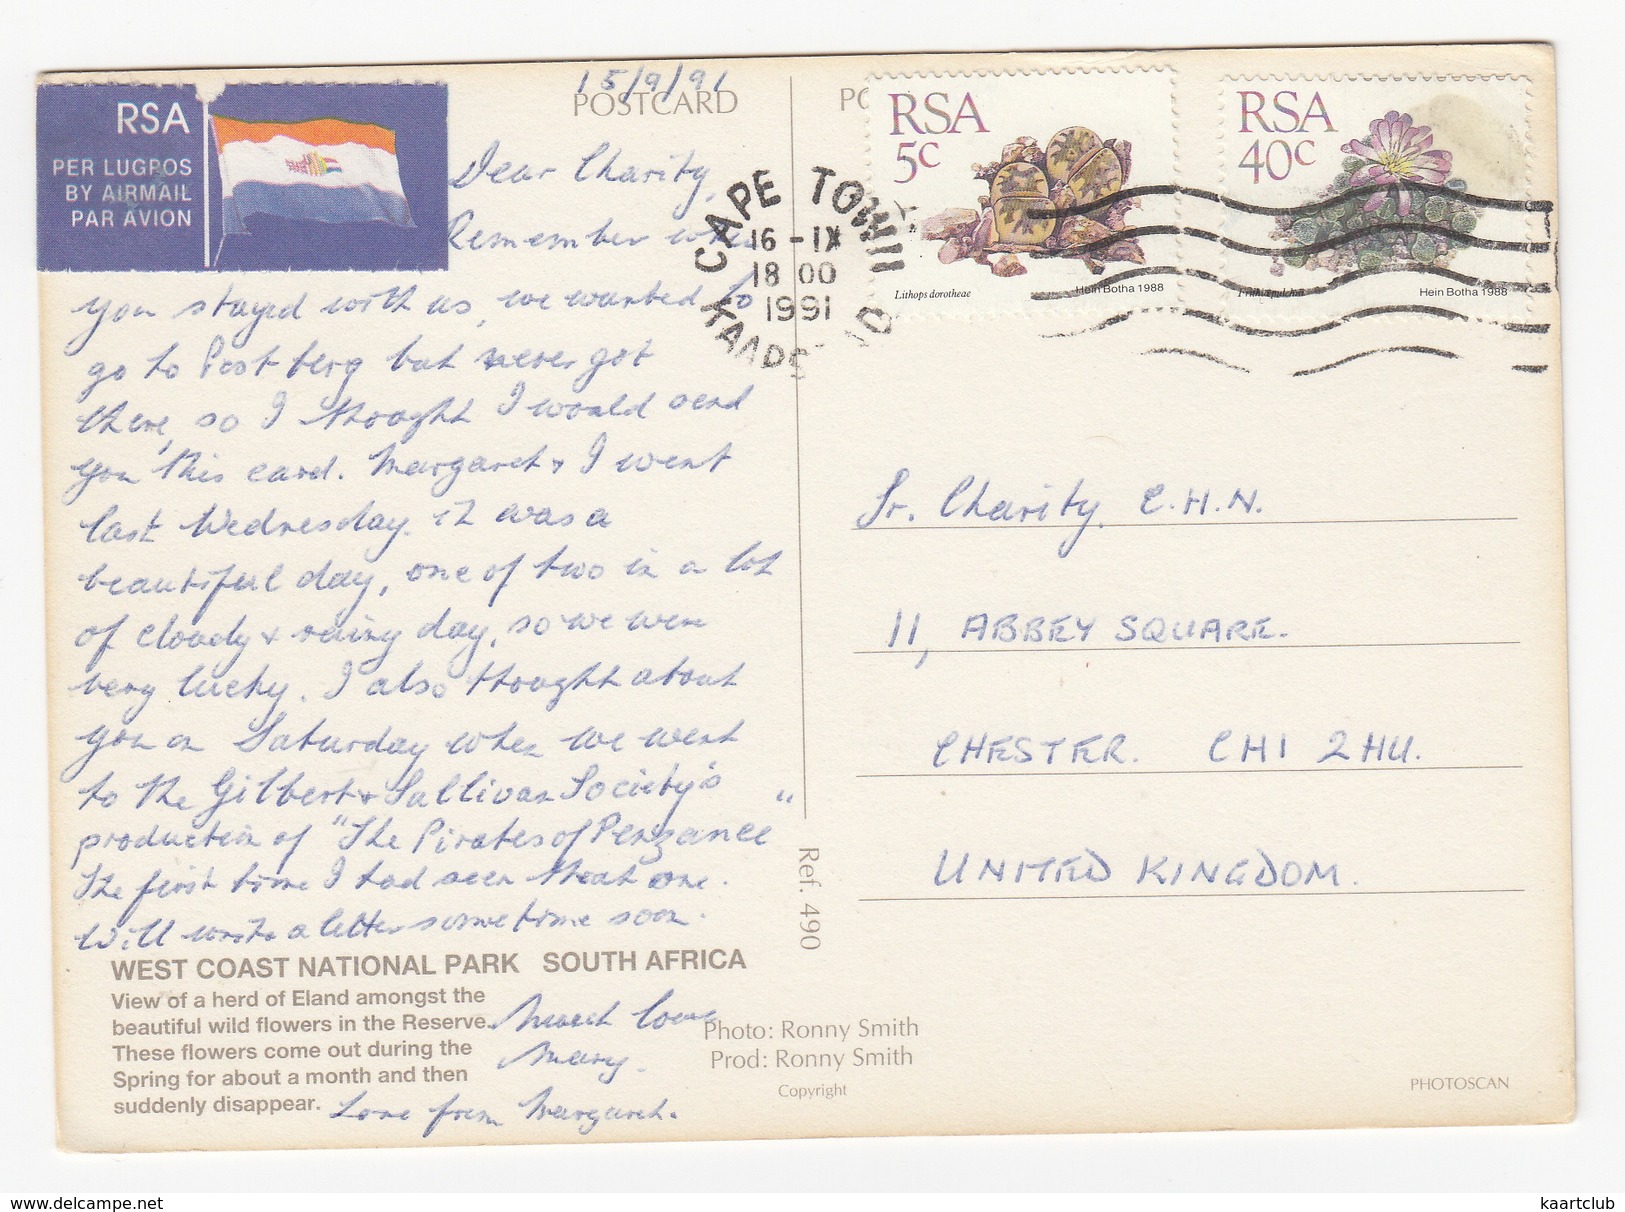 RSA
PER LUGPOS
BY AIRMAIL
PAR AVION
15/9/91
POSTCARD
Dear Charity,
Remember when
you stayed with us, we wanted to
go to Postberg but never got
there, so I thought I would send
you this card. Margaret & I went
last Wednesday. it was a
beautiful day, one of two in a lot
of cloudy & rainy day, so we were
very lucky. I also thought about
you on Saturday when we went
to the Gilbert & Sullivan Society's
production of "The Pirates of Penzance"
The first time I had seen that one.
Will write a letter sometime soon.
Much love
Mary.
Love from Margaret.
WEST COAST NATIONAL PARK SOUTH AFRICA
View of a herd of Eland amongst the
beautiful wild flowers in the Reserve.
These flowers come out during the
Spring for about a month and then
suddenly disappear.
Ref. 490
Photo: Ronny Smith
Prod: Ronny Smith
Copyright
PHOTOSCAN
CAPE TOWN
16 -IX
18 00
1991
RSA
5c
Lithops dorotheae
Hein Botha 1988
RSA
40c
Hein Botha 1988
Sr. Charity. C.H.N.
11, ABBEY SQUARE.
CHESTER. CH1 2HU.
UNITED KINGDOM.
kaartclub